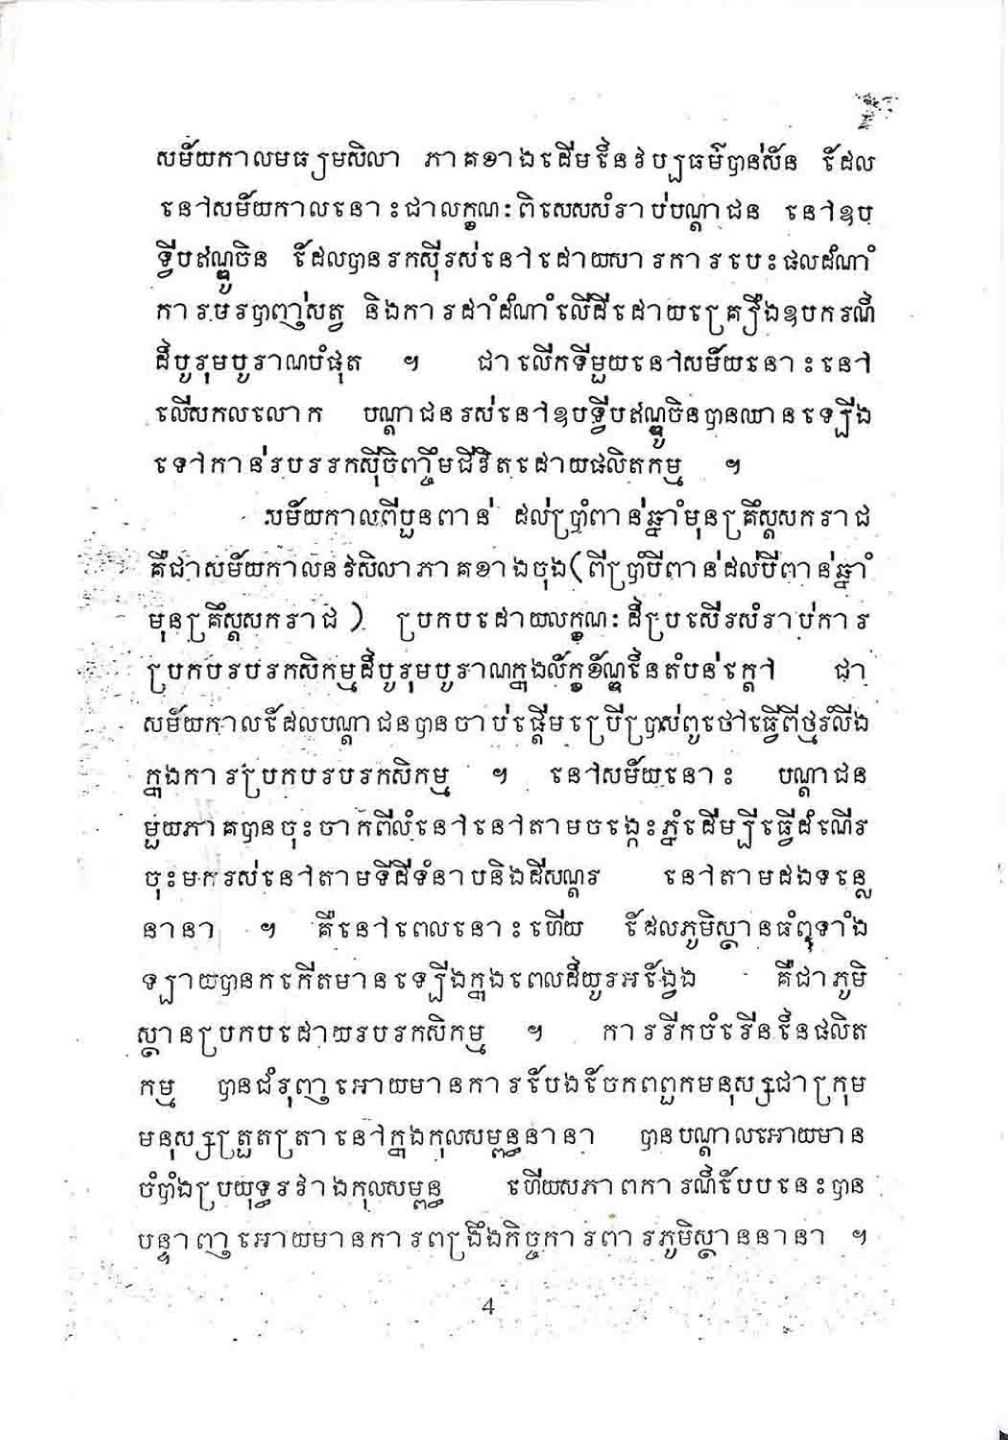 សម័យកាលមធ្យមសិលា ភាគខាងដើមនៃវប្បធម៌បាន់ស័ន ដែល
នៅសម័យកាលនោះជាលក្ខណៈពិសេសសំរាប់បណ្ដាជន នៅឧប
ទ្វីបឥណ្ឌូចិន ដែលបានរកស៊ីរស់នៅដោយសារការបេះផលដំណាំ
ការមរបាញ់សត្វ និងការដាំដំណាំលើដីដោយគ្រឿងឧបករណ៍
ដ៏បូរុមបូរាណបំផុត ។ ជាលើកទីមួយនៅសម័យនោះនៅ
លើសកលលោក បណ្ដាជនរស់នៅឧបទ្វីបឥណ្ឌូចិនបានឈានឡើង
ទៅកាន់របររកស៊ីចិញ្ចឹមជីវិតដោយផលិតកម្ម ។
សម័យកាលពីបួនពាន់ ដល់ប្រាំពាន់ឆ្នាំមុនគ្រឹស្ដសករាជ
គឺជាសម័យកាលនវសិលាភាគខាងចុង(ពីប្រាំបីពាន់ដល់បីពាន់ឆ្នាំ
មុនគ្រឹស្ដសករាជ) ប្រកបដោយលក្ខណៈដ៏ប្រសើរសំរាប់ការ
ប្រកបរបរកសិកម្មដ៏បូរុមបូរាណក្នុងល័ក្ខខ័ណ្ឌនៃតំបន់ក្ដៅ ជា
សម័យកាលដែលបណ្ដាជនបានចាប់ផ្ដើមប្រើប្រាស់ពូថៅធ្វើពីថ្មរំលីង
ក្នុងការប្រកបរបរកសិកម្ម ។ នៅសម័យនោះ បណ្ដាជន
មួយភាគបានចុះចាកពីលំនៅនៅតាមចង្កេះភ្នំដើម្បីធ្វើដំណើរ
ចុះមករស់នៅតាមទីដីទំនាបនិងដីសណ្ដរ នៅតាមដងទន្លេ
នានា ។ គឺនៅពេលនោះហើយ ដែលភូមិស្ថានធំពុទាំង
ឡាយបានកកើតមានឡើងក្នុងពេលដ៏យូរអង្វែង គឺជាភូមិ
ស្ថានប្រកបដោយរបរកសិកម្ម ។ ការរីកចំរើននៃផលិត
កម្ម បានជំរុញអោយមានការបែងចែកពពួកមនុស្សជាក្រុម
មនុស្សត្រួតត្រានៅក្នុងកុលសម្ពន្ធនានា បានបណ្ដាលអោយមាន
ចំបាំងប្រយុទ្ធរវាងកុលសម្ពន្ធ ហើយសភាពការណ៍បែបនេះបាន
បន្ទាញអោយមានការពង្រឹងកិច្ចការពារភូមិស្ថាននានា ។
4